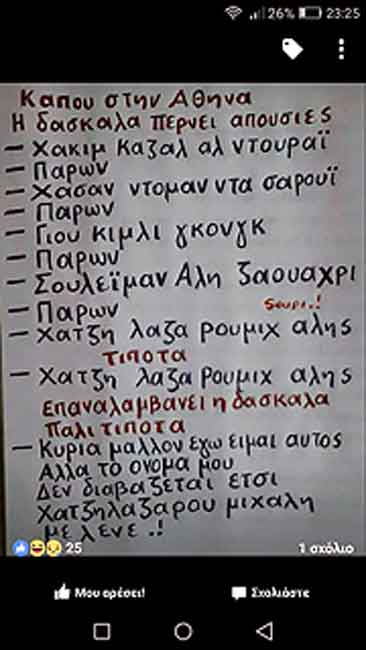 26% 23:25
Καπου στην Αθηνα
Η δασκαλα περνει απουσιες
– Χακιμ Καζαλ αλ ντουραϊ
– Παρων
– Χασαν ντομαν ντα σαρουϊ
– Παρων
– Γιου κιμλι γκονγκ
– Παρων
– Σουλεϊμαν Αλη ζαουαχρι
– Παρων
Souri.!
– Χατζη λαζα ρουμιχ αλης
τιποτα
– Χατζη λαζα Ρουμιχ αλης
Επαναλαμβανει η δασκαλα
Παλι τιποτα
– Κυρια μαλλον εγω ειμαι αυτος
Αλλα το ονομα μου
Δεν διαβαζεται ετσι
Χατζηλαζαρου μιχαλη
με λενε .!
25
1 σχόλιο
Μου αρέσει!
Σχολιάστε